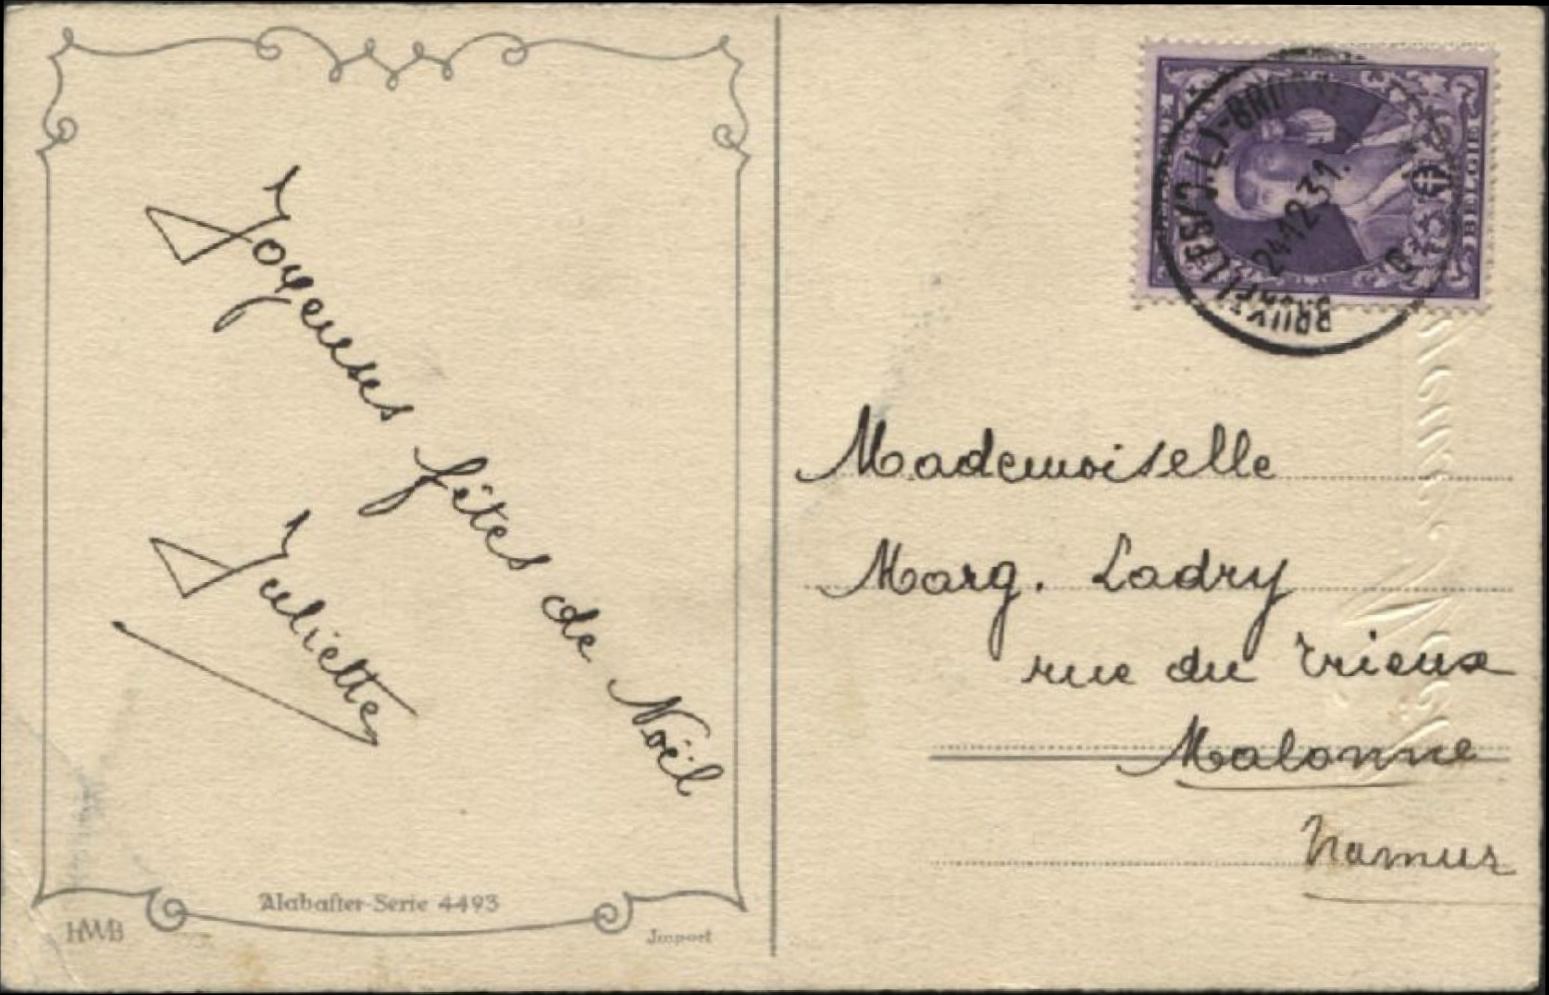 Joyeuses fêtes de Noël
Juliette
Alabaster-Serie 4493
HWB
Import
BELGIE
BRUXELLES
24.12.31.
Mademoiselle
Marg. Ladry
rue du trieux
Malonne
Namur